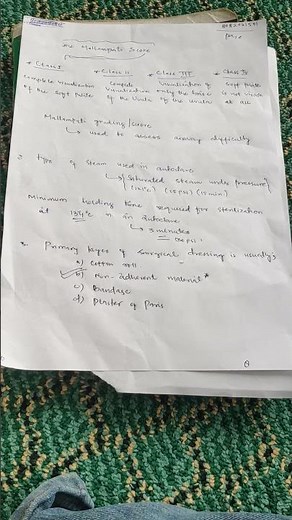 The Mallampati Score
* Class I * Class II * Class III * Class IV
complete visualization complete visualization of soft palate
of the soft palate visualization only the base is not visible
of the uvula of the uvula at all
Mallampati grading/score
↳ used to assess airway difficulty
type of steam used in autoclave
↳ saturated steam under pressure
(121°C) (15PSI) (15min)
Minimum holding time required for sterilization
at 134°C in autoclave
↳ 3 minutes
Primary layer of surgical dressing is usually;
a) Cotton roll
b) Non-adherent material *
c) Bandage
d) Plaster of Paris